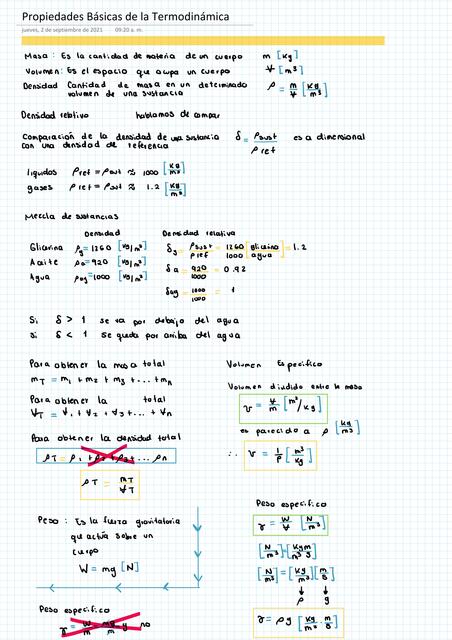 Propiedades Básicas de la Termodinámica
jueves, 2 de septiembre de 2021 09:20 a. m.
Masa : Es la cantidad de materia de un cuerpo m [Kg]
Volumen: Es el espacio que ocupa un cuerpo V [m³]
Densidad Cantidad de masa en un determinado volumen de una sustancia ρ = m/V [Kg/m³]
Densidad relativa hablamos de compar
Comparación de la densidad de una sustancia con una densidad de referencia δ = ρsust/ρref es a dimensional
líquidos ρref = ρagua ≈ 1000 [Kg/m³]
gases ρref = ρaire ≈ 1.2 [Kg/m³]
Mezcla de sustancias
Densidad Densidad relativa
Glicerina ρg = 1260 [Kg/m³] δg = ρsust/ρref = 1260/1000 [glicerina/agua] = 1.2
Aceite ρa = 920 [Kg/m³] δa = 920/1000 = 0.92
Agua ρag = 1000 [Kg/m³] δag = 1000/1000 = 1
Si δ > 1 se va por debajo del agua
si δ < 1 se queda por arriba del agua
Para obtener la masa total
mT = m1 + m2 + m3 + ... + mn
Para obtener la total
VT = V1 + V2 + V3 + ... + Vn
Para obtener la densidad total
ρT = ρ1 + ρ2 + ρ3 + ... ρn
ρT = mT/VT
Volumen Específico
Volumen dividido entre la masa
v = V/m [m³/Kg]
es parecido a ρ [Kg/m³]
∴ v = 1/ρ [m³/Kg]
Peso : Es la fuerza gravitatoria
que actúa sobre un
cuerpo
W = mg [N]
Peso especifico
γ = W/m mg/m g no
Peso especifico
γ = W/V [N/m³]
[N/m³] = [Kg m/m³ s]
[N/m³] = [Kg/m³] [m/s]
ρ g
γ = ρg [Kg/m³ m/s]